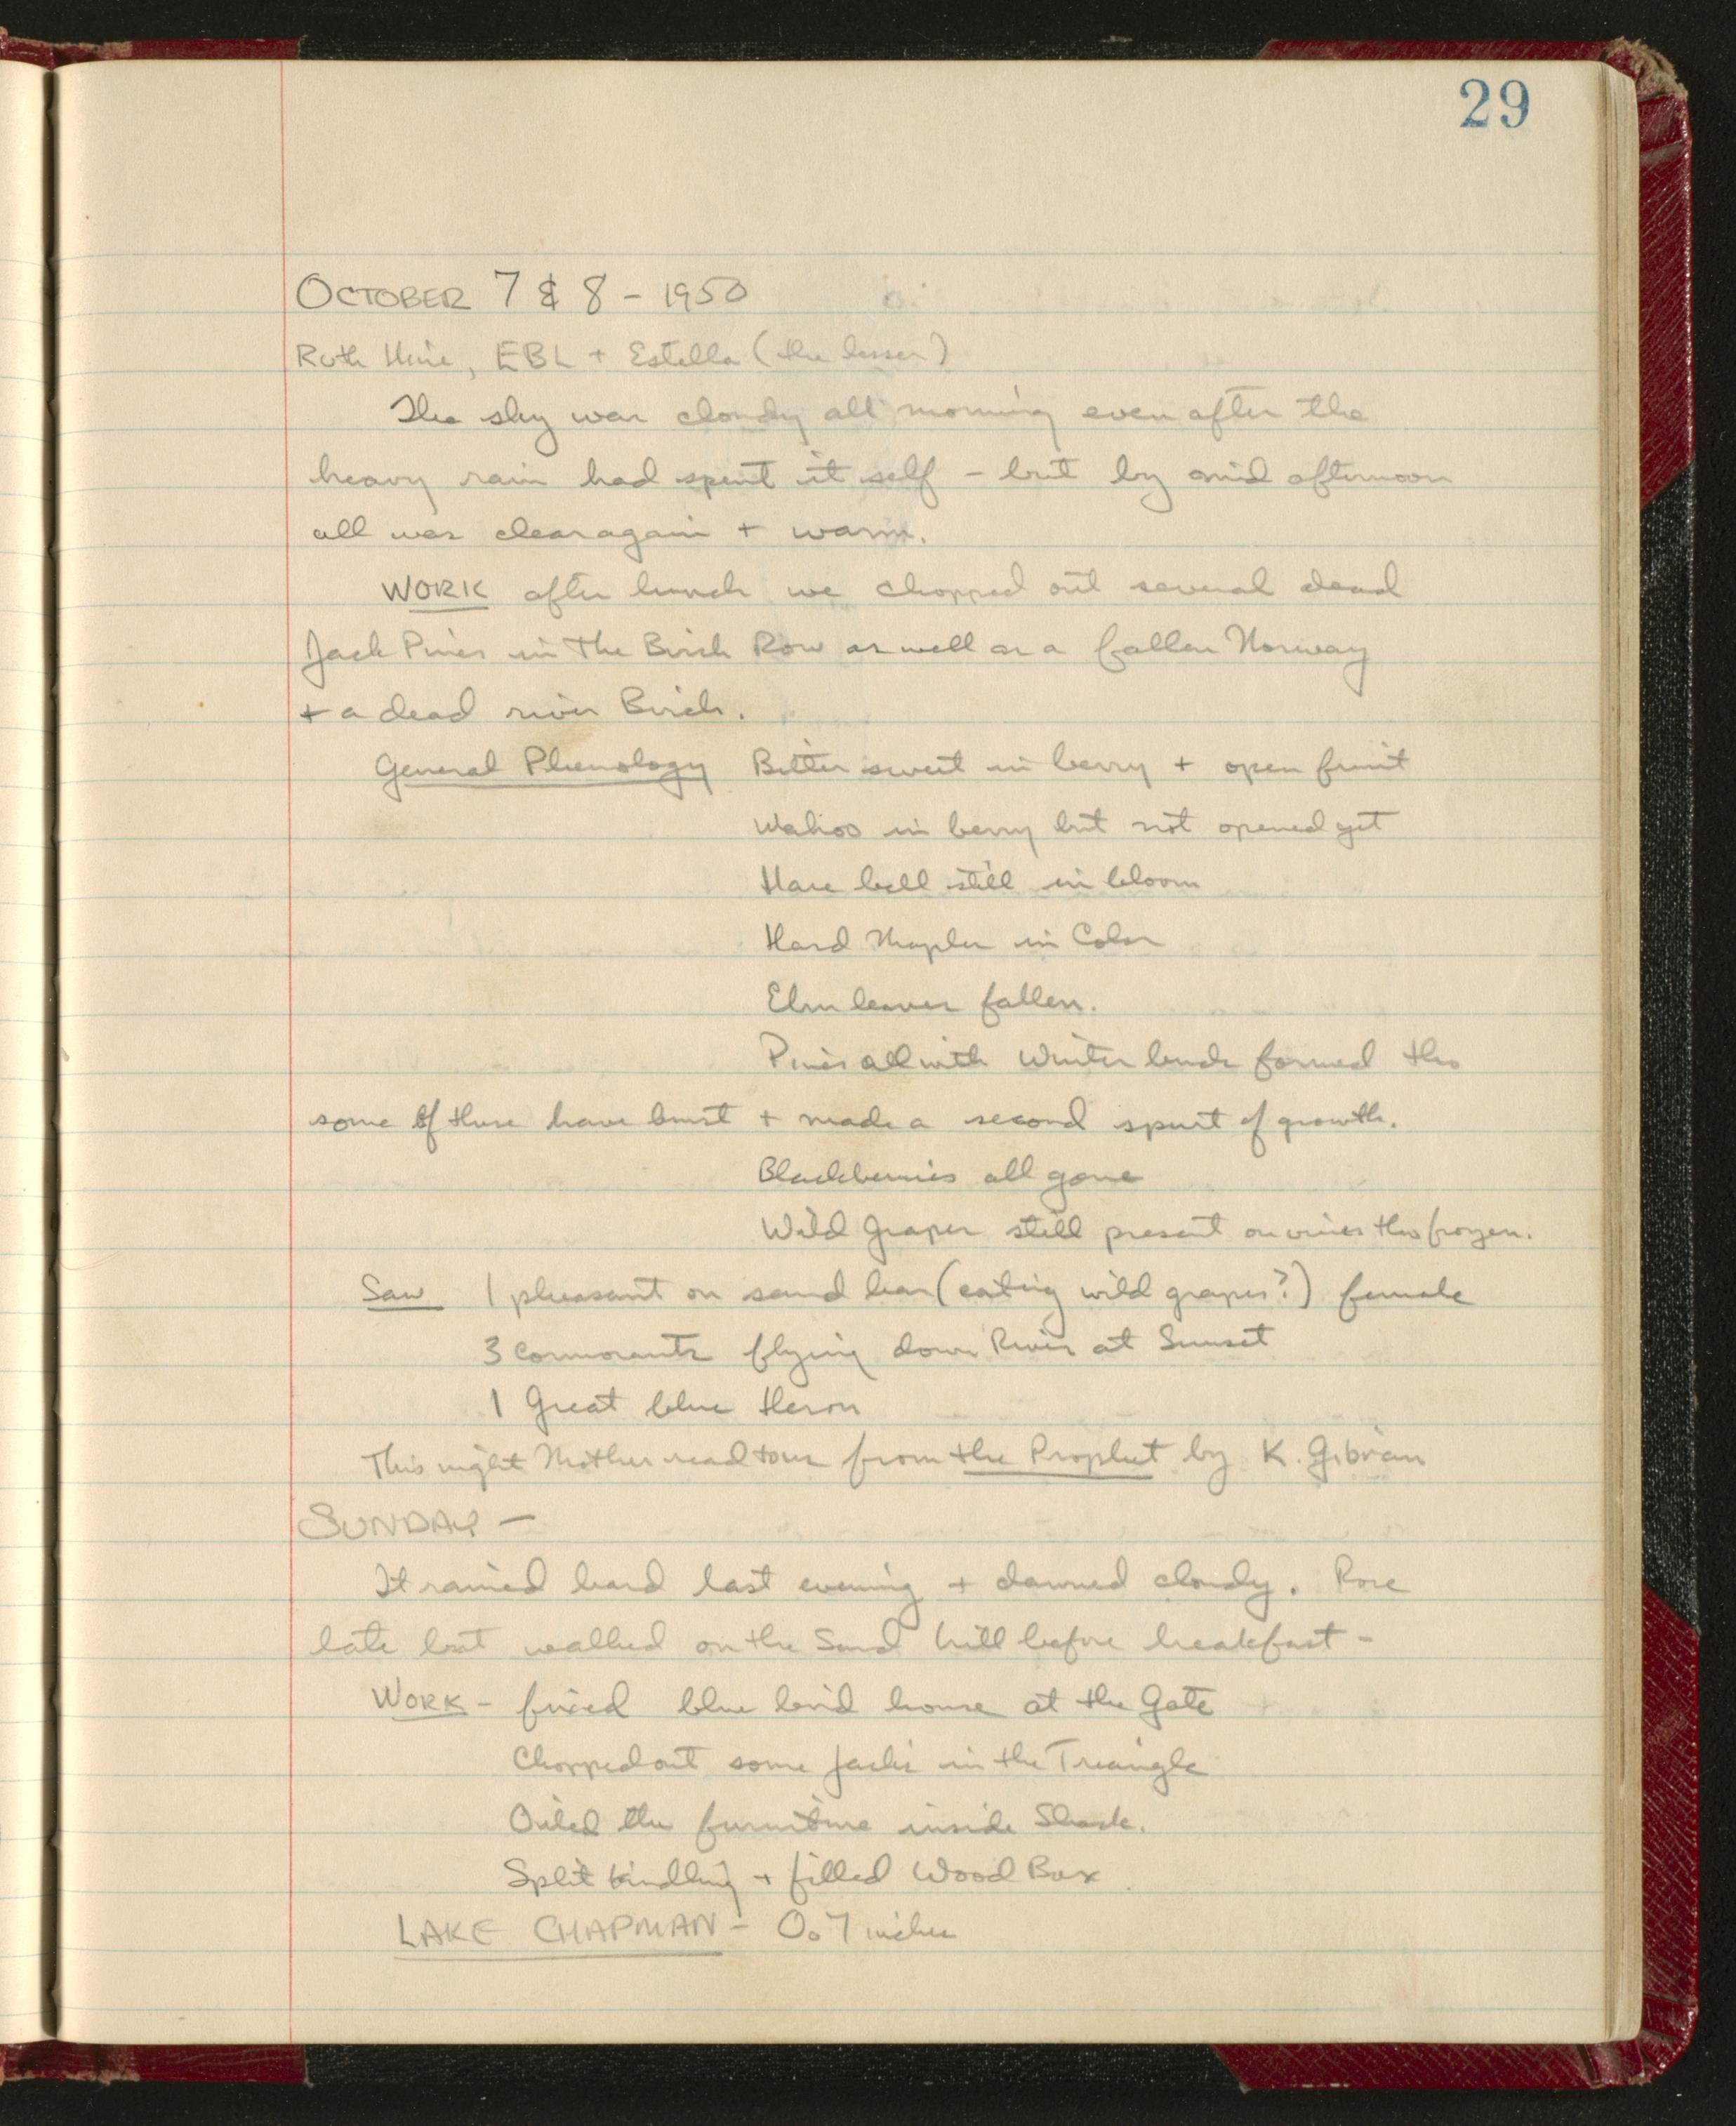 29
OCTOBER 7 & 8 - 1950
Ruth Hine, EBL + Estella (the lesser)
The sky was cloudy all morning even after the
heavy rain had spent it self - but by mid afternoon
all was clear again + warm.
WORK after lunch we chopped out several dead
Jack Pines in The Birch Row as well as a fallen Norway
+ a dead river Birch.
General Phenology Bitter sweet in berry + open fruit
Wahoo in berry but not opened yet
Hare bell still in bloom
Hard Maples in Color
Elm leaves fallen.
Pines all with Winter buds formed tho
some of these have burst + made a second spurt of growth.
Blackberries all gone
Wild Grapes still present on vines tho frozen.
Saw 1 pheasant on sand bar (eating wild grapes?) female
3 Cormorants flying down River at Sunset
1 Great blue Heron
This night Mother read to us from the Prophet by K. Gibran
SUNDAY -
It rained hard last evening + dawned cloudy. Rose
late but walked on the Sand hill before breakfast -
WORK - fixed blue bird house at the Gate
Chopped out some jacks in the Triangle
Oiled the furniture inside Shack.
Split kindling + filled Wood Box
LAKE CHAPMAN - 0.7 inches